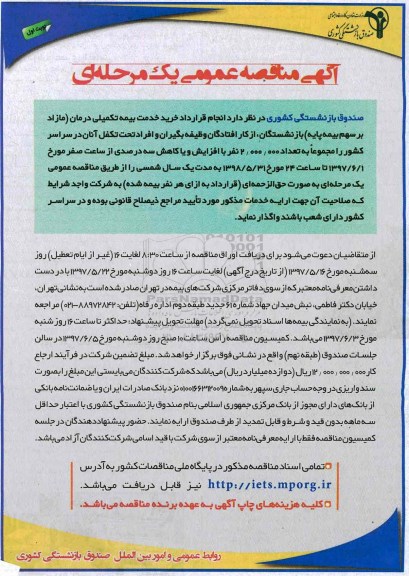 صندوق بازنشستگی کشوری
نوبت اول
آگهی مناقصه عمومی یک مرحله‌ای
صندوق بازنشستگی کشوری در نظر دارد انجام قرارداد خرید خدمت بیمه تکمیلی درمان (مازاد
بر سهم بیمه پایه) بازنشستگان، از کار افتادگان وظیفه بگیران و افراد تحت تکفل آنان در سراسر
کشور را مجموعاً به تعداد ۲,۰۰۰,۰۰۰ نفر با افزایش و یا کاهش سه درصدی از ساعت صفر مورخ
۱۳۹۷/۶/۱ تا ساعت ۲۴ مورخ ۱۳۹۸/۵/۳۱ به مدت یک سال شمسی را از طریق مناقصه عمومی
یک مرحله‌ای به صورت حق‌الزحمه‌ای (قرارداد به ازای هر نفر بیمه شده) به شرکت واجد شرایط
که صلاحیت آن جهت ارایه خدمات مذکور مورد تأیید مراجع ذیصلاح قانونی بوده و در سراسر
کشور دارای شعب باشند واگذار نماید.
از متقاضیان دعوت می‌شود برای دریافت اوراق مناقصه از ساعت ۸:۳۰ لغایت ۱۶ (غیر از ایام تعطیل) روز
سه‌شنبه مورخ ۱۳۹۷/۵/۱۶ (از تاریخ درج آگهی) لغایت ساعت ۱۶ روز دوشنبه مورخ ۱۳۹۷/۵/۲۲ با در دست
داشتن معرفی‌نامه معتبر که از سوی دفاتر مرکزی شرکت‌های بیمه در تهران صادر شده است به نشانی تهران،
خیابان دکتر فاطمی، نبش میدان جهاد شماره ۶۱ جدید طبقه دوم اداره رفاه (تلفن: ۸۸۹۷۲۸۴۲-۰۲۱) مراجعه
نمایند. (به نمایندگی بیمه‌ها اسناد تحویل نمی‌گردد) مهلت تحویل پیشنهاد: حداکثر تا ساعت ۱۶ روز شنبه
مورخ ۱۳۹۷/۶/۳ می‌باشد. کمیسیون مناقصه رأس ساعت ۱۰ صبح روز دوشنبه مورخ ۱۳۹۷/۶/۵ در سالن
جلسات صندوق (طبقه نهم) واقع در نشانی فوق برگزار خواهد شد. مبلغ تضمین شرکت در فرآیند ارجاع
کار ۱۲,۰۰۰,۰۰۰,۰۰۰ ریال (دوازده میلیارد ریال) می‌باشد که شرکت‌کنندگان می‌بایستی این مبلغ را بصورت
سند واریزی در وجه حساب جاری سپهر به شماره نزد بانک صادرات ایران و یا ضمانت‌نامه بانکی
از بانک‌های دارای مجوز از بانک مرکزی جمهوری اسلامی بنام صندوق بازنشستگی کشوری با اعتبار حداقل
سه ماهه بدون قید و شرط و قابل تمدید از طرف صندوق ارایه نمایند. حضور پیشنهاددهندگان در جلسه
کمیسیون مناقصه فقط با ارایه معرفی‌نامه معتبر از سوی شرکت با قید اسامی شرکت‌کنندگان آزاد می‌باشد.
تمامی اسناد مناقصه مذکور در پایگاه ملی مناقصات کشور به آدرس
http://iets.mporg.ir نیز قابل دریافت می‌باشد.
کلیه هزینه‌های چاپ آگهی به عهده برنده مناقصه می‌باشد.
روابط عمومی و امور بین الملل صندوق بازنشستگی کشوری